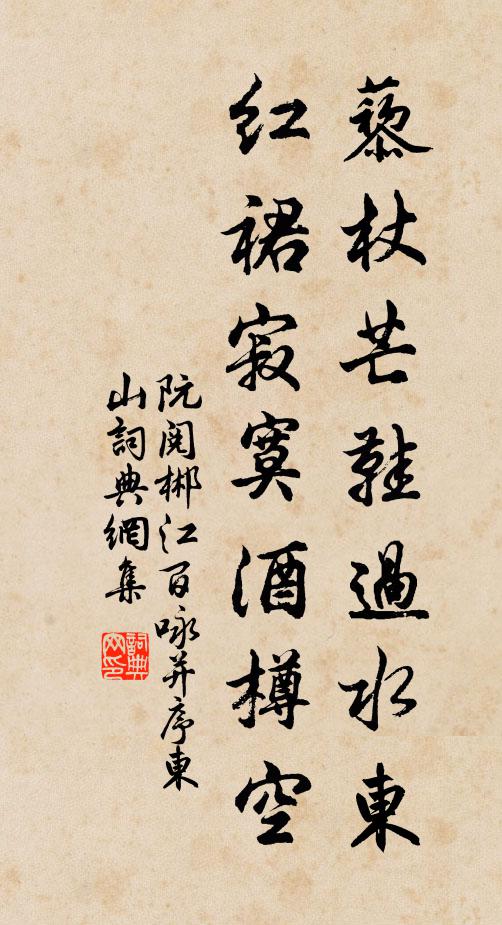 藜杖芒鞋過水東
紅裙寂寞酒樽空
阮閱郴江百咏并序東
山詞典網集
詞典
网印